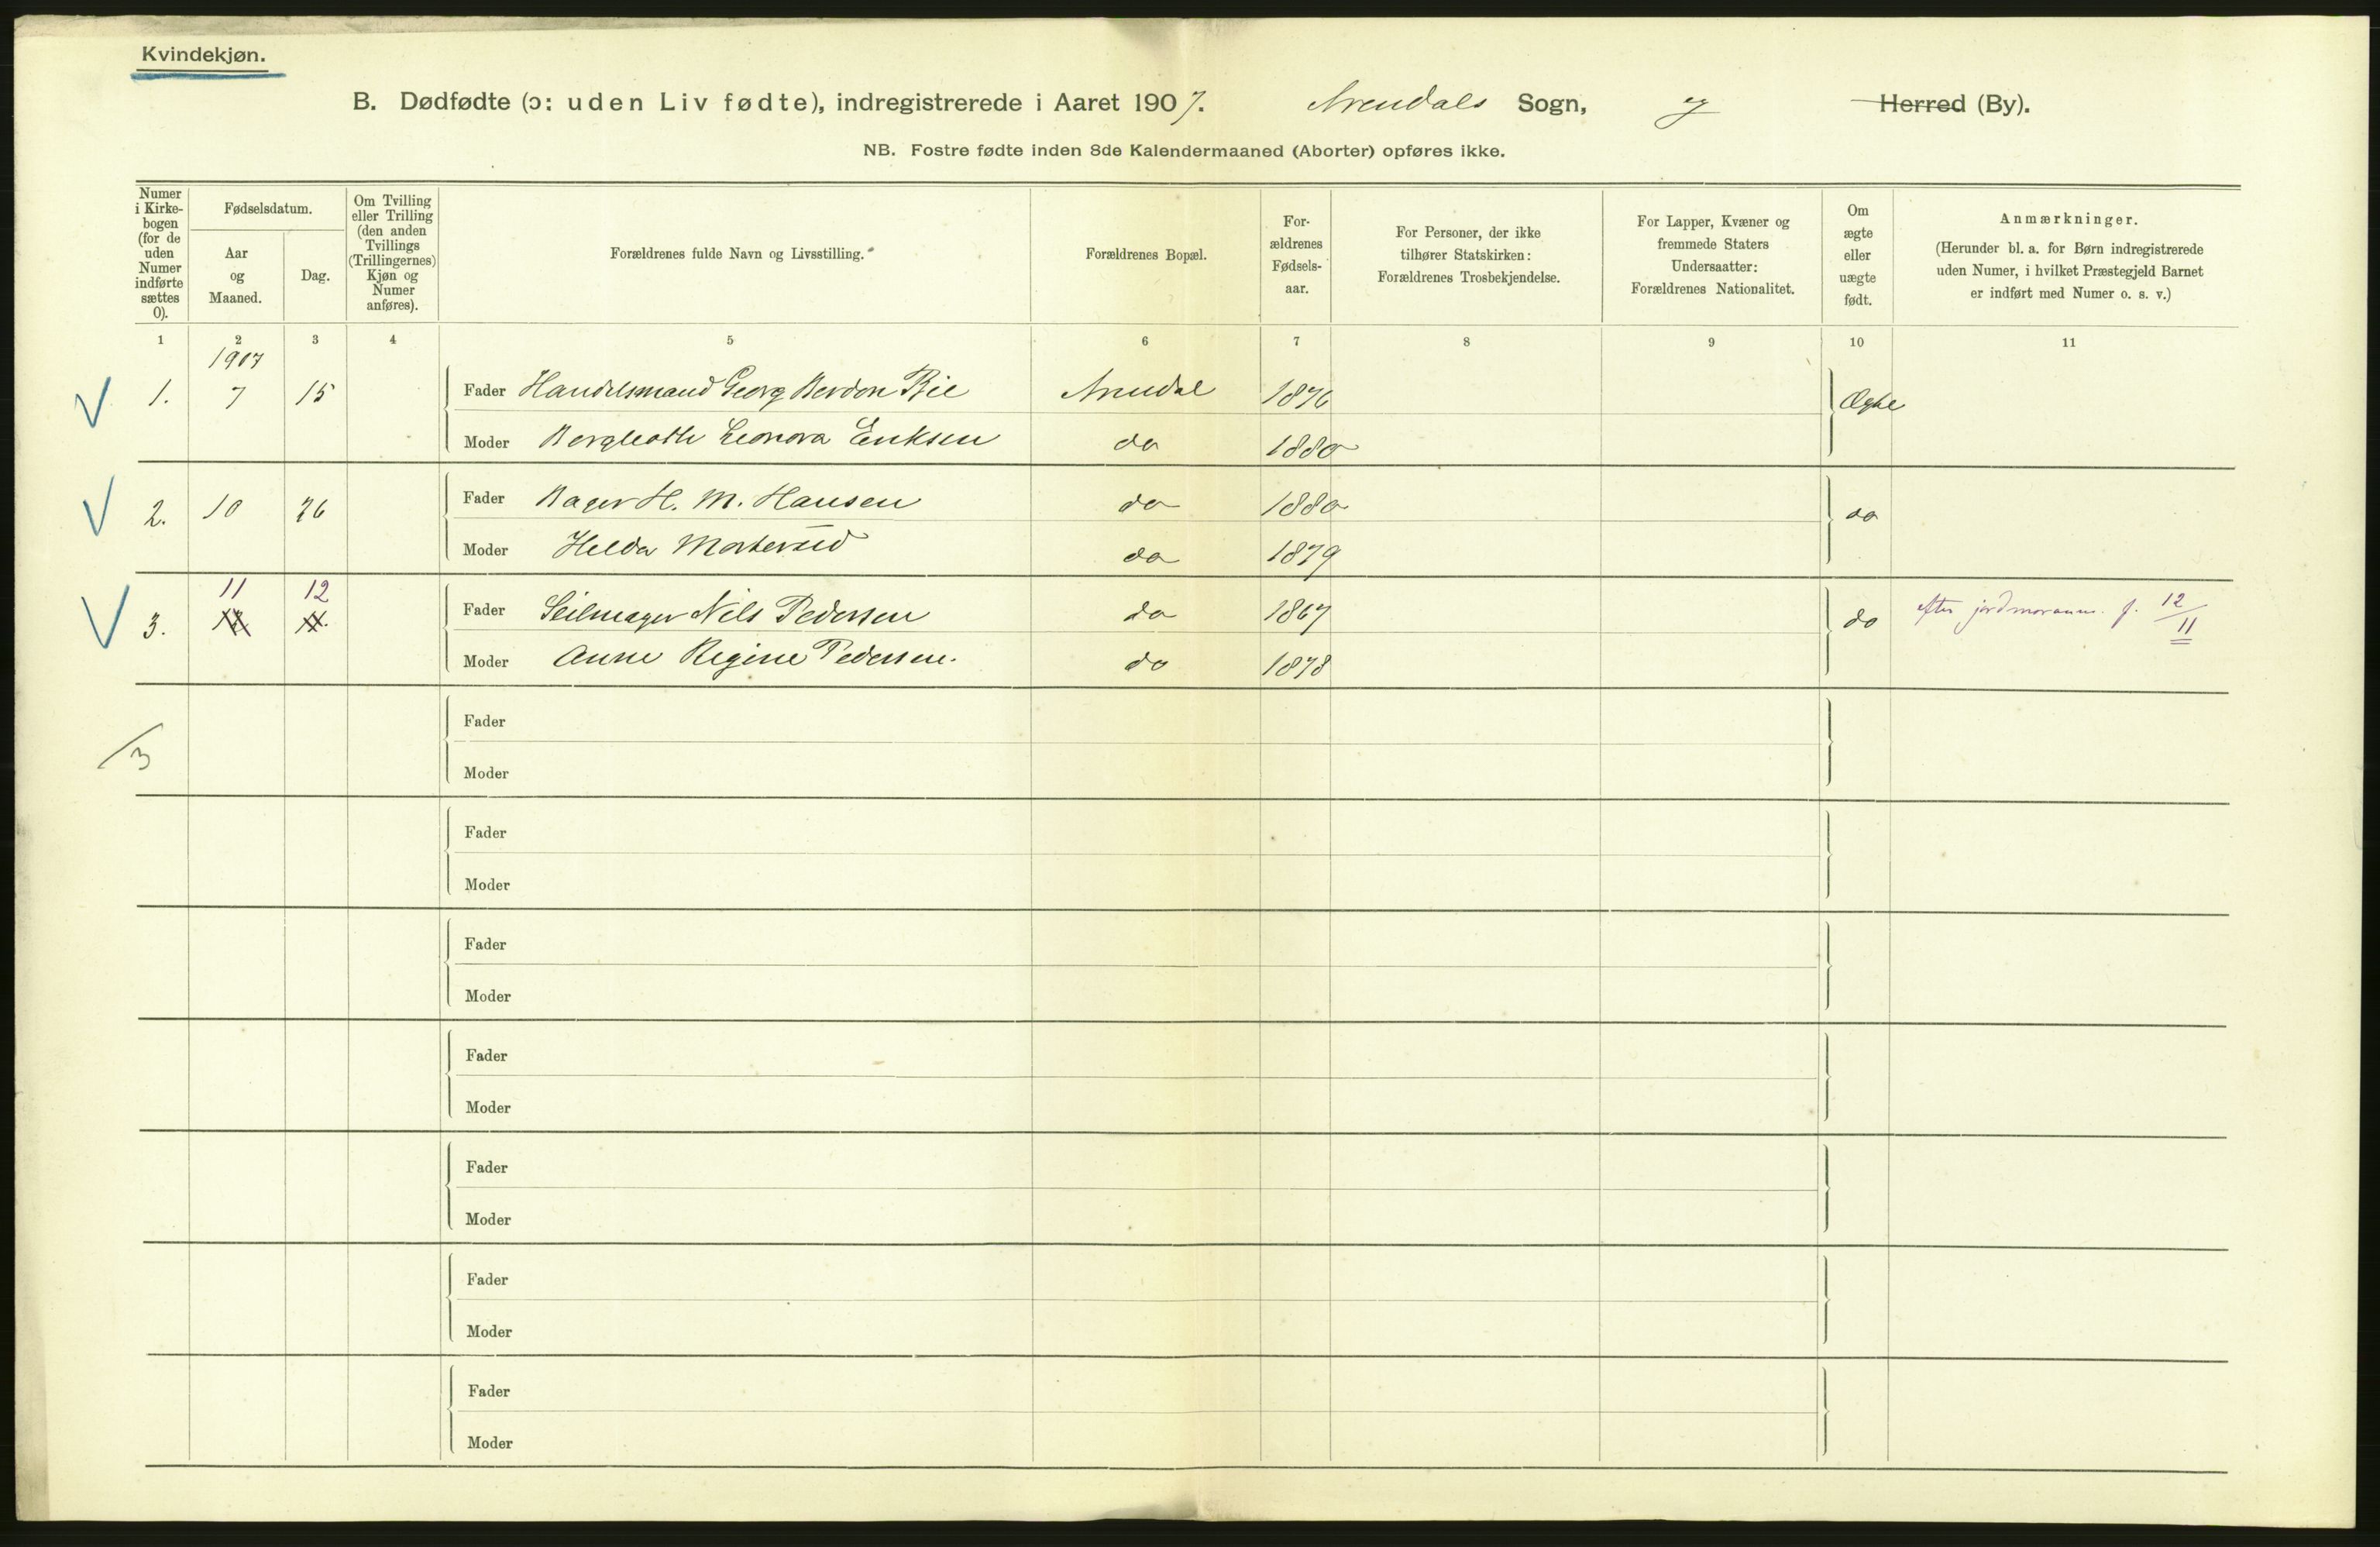 Kvindekjøn.
B. Dødfødte (ɔ: uden Liv fødte), indregistrerede i Aaret 1907. Arendals Sogn, og Herred (By).
NB. Fostre fødte inden 8de Kalendermaaned (Aborter) opføres ikke.
Numer i Kirke- bogen (for de uden Numer indførte sættes 0).
Fødselsdatum.
Aar og Maaned.
Dag.
Om Tvilling eller Trilling (den anden Tvillings (Trillingernes) Kjøn og Numer anføres).
Forældrenes fulde Navn og Livsstilling.
Forældrenes Bopæl.
For- ældrenes Fødsels- aar.
For Personer, der ikke tilhører Statskirken: Forældrenes Trosbekjendelse.
For Lapper, Kvæner og fremmede Staters Undersaatter: Forældrenes Nationalitet.
Om ægte eller uægte født.
Anmærkninger.
(Herunder bl. a. for Børn indregistrerede uden Numer, i hvilket Præstegjeld Barnet er indført med Numer o. s. v.)
1 2 3 4 5 6 7 8 9 10 11
1907
1. 7 15 Fader Handelsmand Georg Berdon Bie Arendal 1876 Ægte
Moder Leonora Eriksen do 1880
2. 10 26 Fader Bager H. M. Hansen do 1880 do
Moder Helda do 1879
11 12
3. Fader Seilmager Nils Pedersen do 1867 do efter jordmoranm. f. 12/11
Moder Anne Regine Pedersen. do 1878
Fader
3
Moder
Fader
Moder
Fader
Moder
Fader
Moder
Fader
Moder
Fader
Moder
Fader
Moder